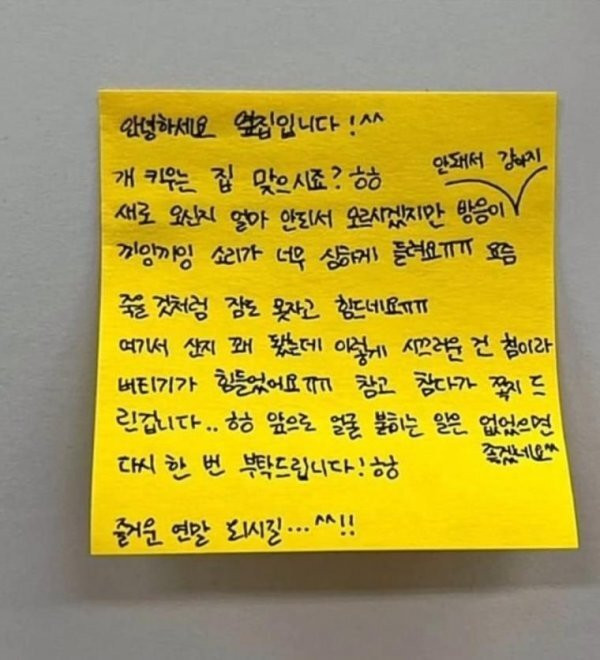 안녕하세요 옆집입니다!^^
개 키우는 집 맞으시죠? ㅎㅎ
새로 오신지 얼마 안되서 모르시겠지만 방음이 안돼서 강아지
끼잉끼잉 소리가 너무 심하게 들려요ㅠㅠ 요즘
죽을 것처럼 잠도 못자고 힘드네요ㅠㅠ
여기서 산지 꽤 됐는데 이렇게 시끄러운 건 첨이라
버티기가 힘들었어요ㅠㅠ 참고 참다가 쪽지 드
린겁니다.. ㅎㅎ 앞으로 얼굴 붉히는 일은 없었으면 좋겠네요^^
다시 한 번 부탁드립니다!ㅎㅎ
즐거운 연말 되시길...^^!!